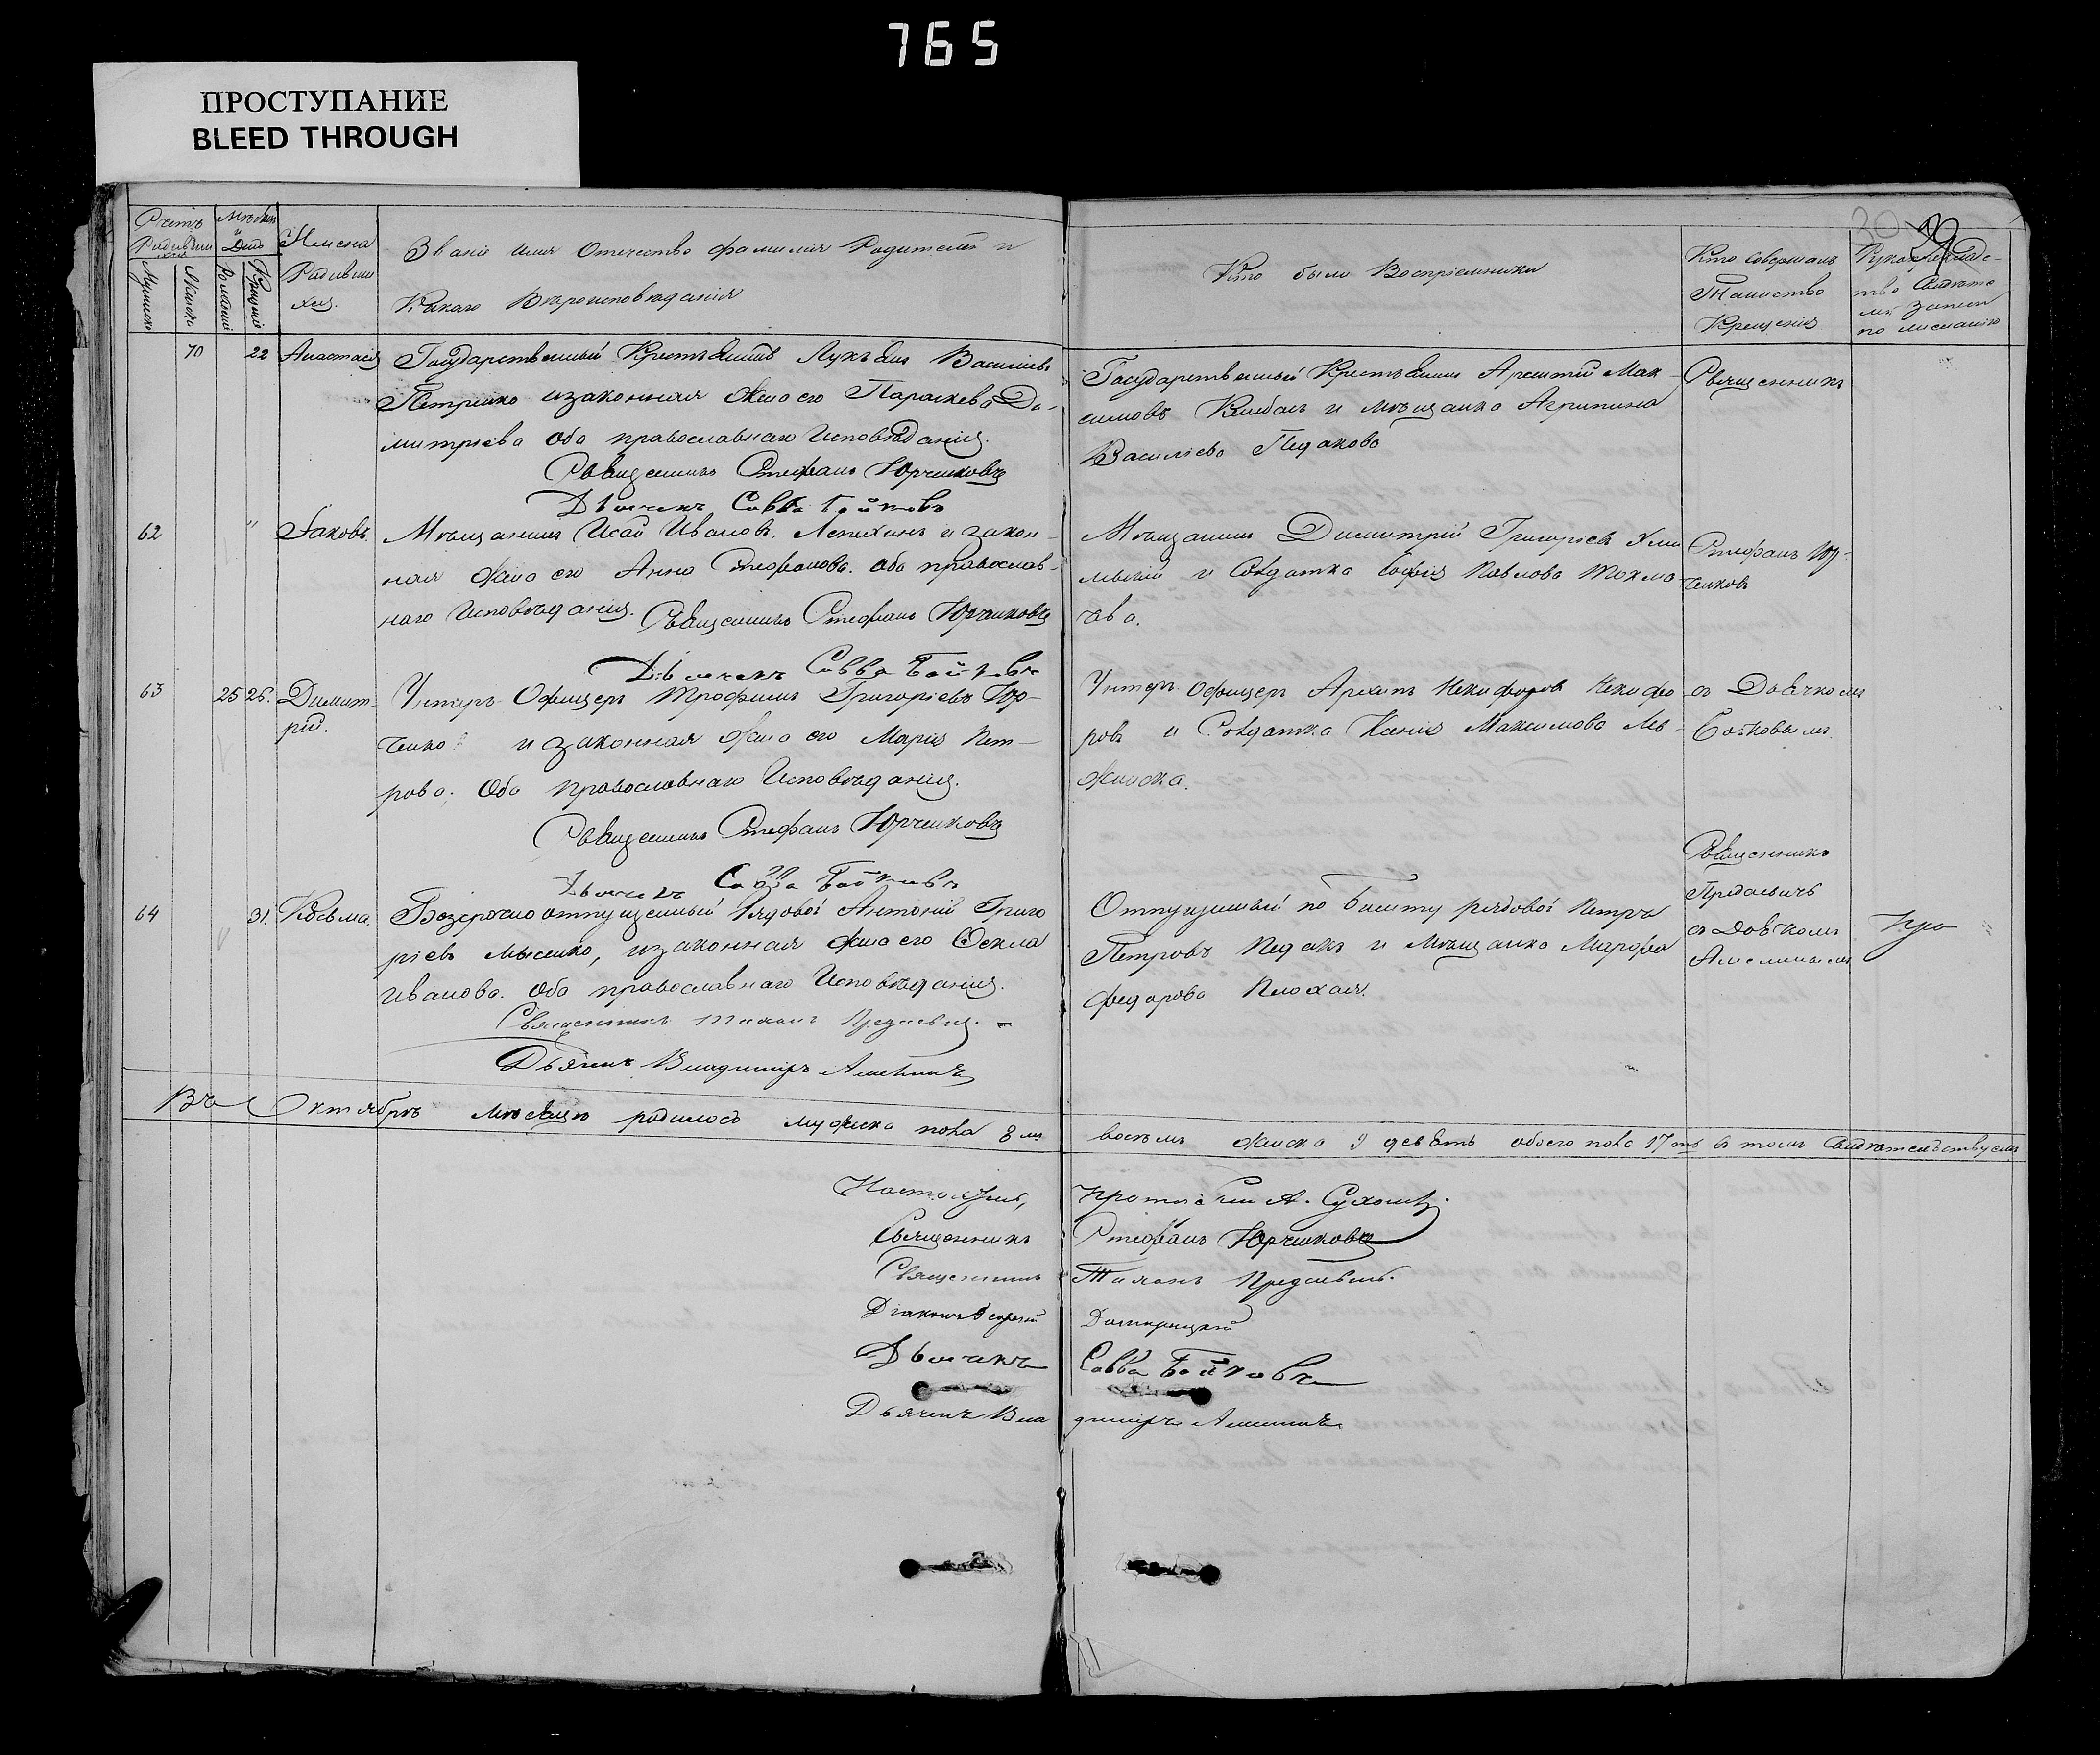 765
ПРОСТУПАНИЕ
BLEED THROUGH
30 29
Счетъ Родившихся
Мужеска
Женска
Мѣсяцъ и День
Рожденія
Крещенія
Имена Родившихся.
Званіе имя Отечество фамилія Родителей и
Какаго Вѣроисповѣданія
Кто были Воспріемники
Кто Совершалъ
Таинство
Крещенія
Рукоприкладство Свидѣтелей Записи по желанію
70 22 Анастасія
Государственный Крестьянинъ Лукьянъ Василіевъ
Петренко и законная жена его Параскева Ди-
митріева оба православнаго Исповѣданія.
Священникъ Стефанъ Юрченковъ
Дьячекъ Савва Бойковъ
Государственный Крестьянинъ Мак-
симовъ и мѣщанка Агрипина
Василіева Педакова
Священникъ
62 " Іаковъ.
Мѣщанинъ Ивановъ. и закон-
ная жена его Анна Стефанова. оба православ-
наго Исповѣданія. Священникъ Стефанъ Юрченковъ
Дьячекъ Савва Бойковъ
Мѣщанинъ Димитрій Григоріевъ Хмѣ
льскій и Солдатка Софія Павлова Токма-
чева.
Стефанъ Юр-
ченковъ
63 25 26. Димит-
рій.
Унтеръ-Офицеръ Трофимъ Григоріевъ Юр-
ченко и законная жена его Марія Пет-
рова. Оба православнаго Исповѣданія.
Священникъ Стефанъ Юрченковъ
Дьячекъ Савва Бойковъ
Унтеръ Офицеръ Архипъ Никифоровъ Никифо
ровъ и Солдатка Ксенія Максимова
съ Дьячкомъ
Бойковымъ.
64 31. Косьма.
Безсрочно отпущенный Рядовой Антоній Григо
ріевъ Лысенко, и законная жена его Ѳекла
Иванова. Оба православнаго Исповѣданія.
Священникъ Тихонъ
Дьячекъ Владиміръ
Отпущенный по билету рядовой Петръ
Петровъ Педакъ и мѣщанка Марфа
Федорова Плохая.
Священникъ
съ Дьячкомъ
Въ Октябрѣ мѣсяцѣ родилось мужеска пола 8 мь восемь женска 9 девять обоего пола 17 ть въ томъ Свидѣтельствуемъ
Настоятель, Протоіерей А.
Священникъ Стефанъ Юрченковъ
Священникъ Тихонъ
Діаконъ
Дьячекъ Савва Бойковъ
Дьячекъ Владиміръ